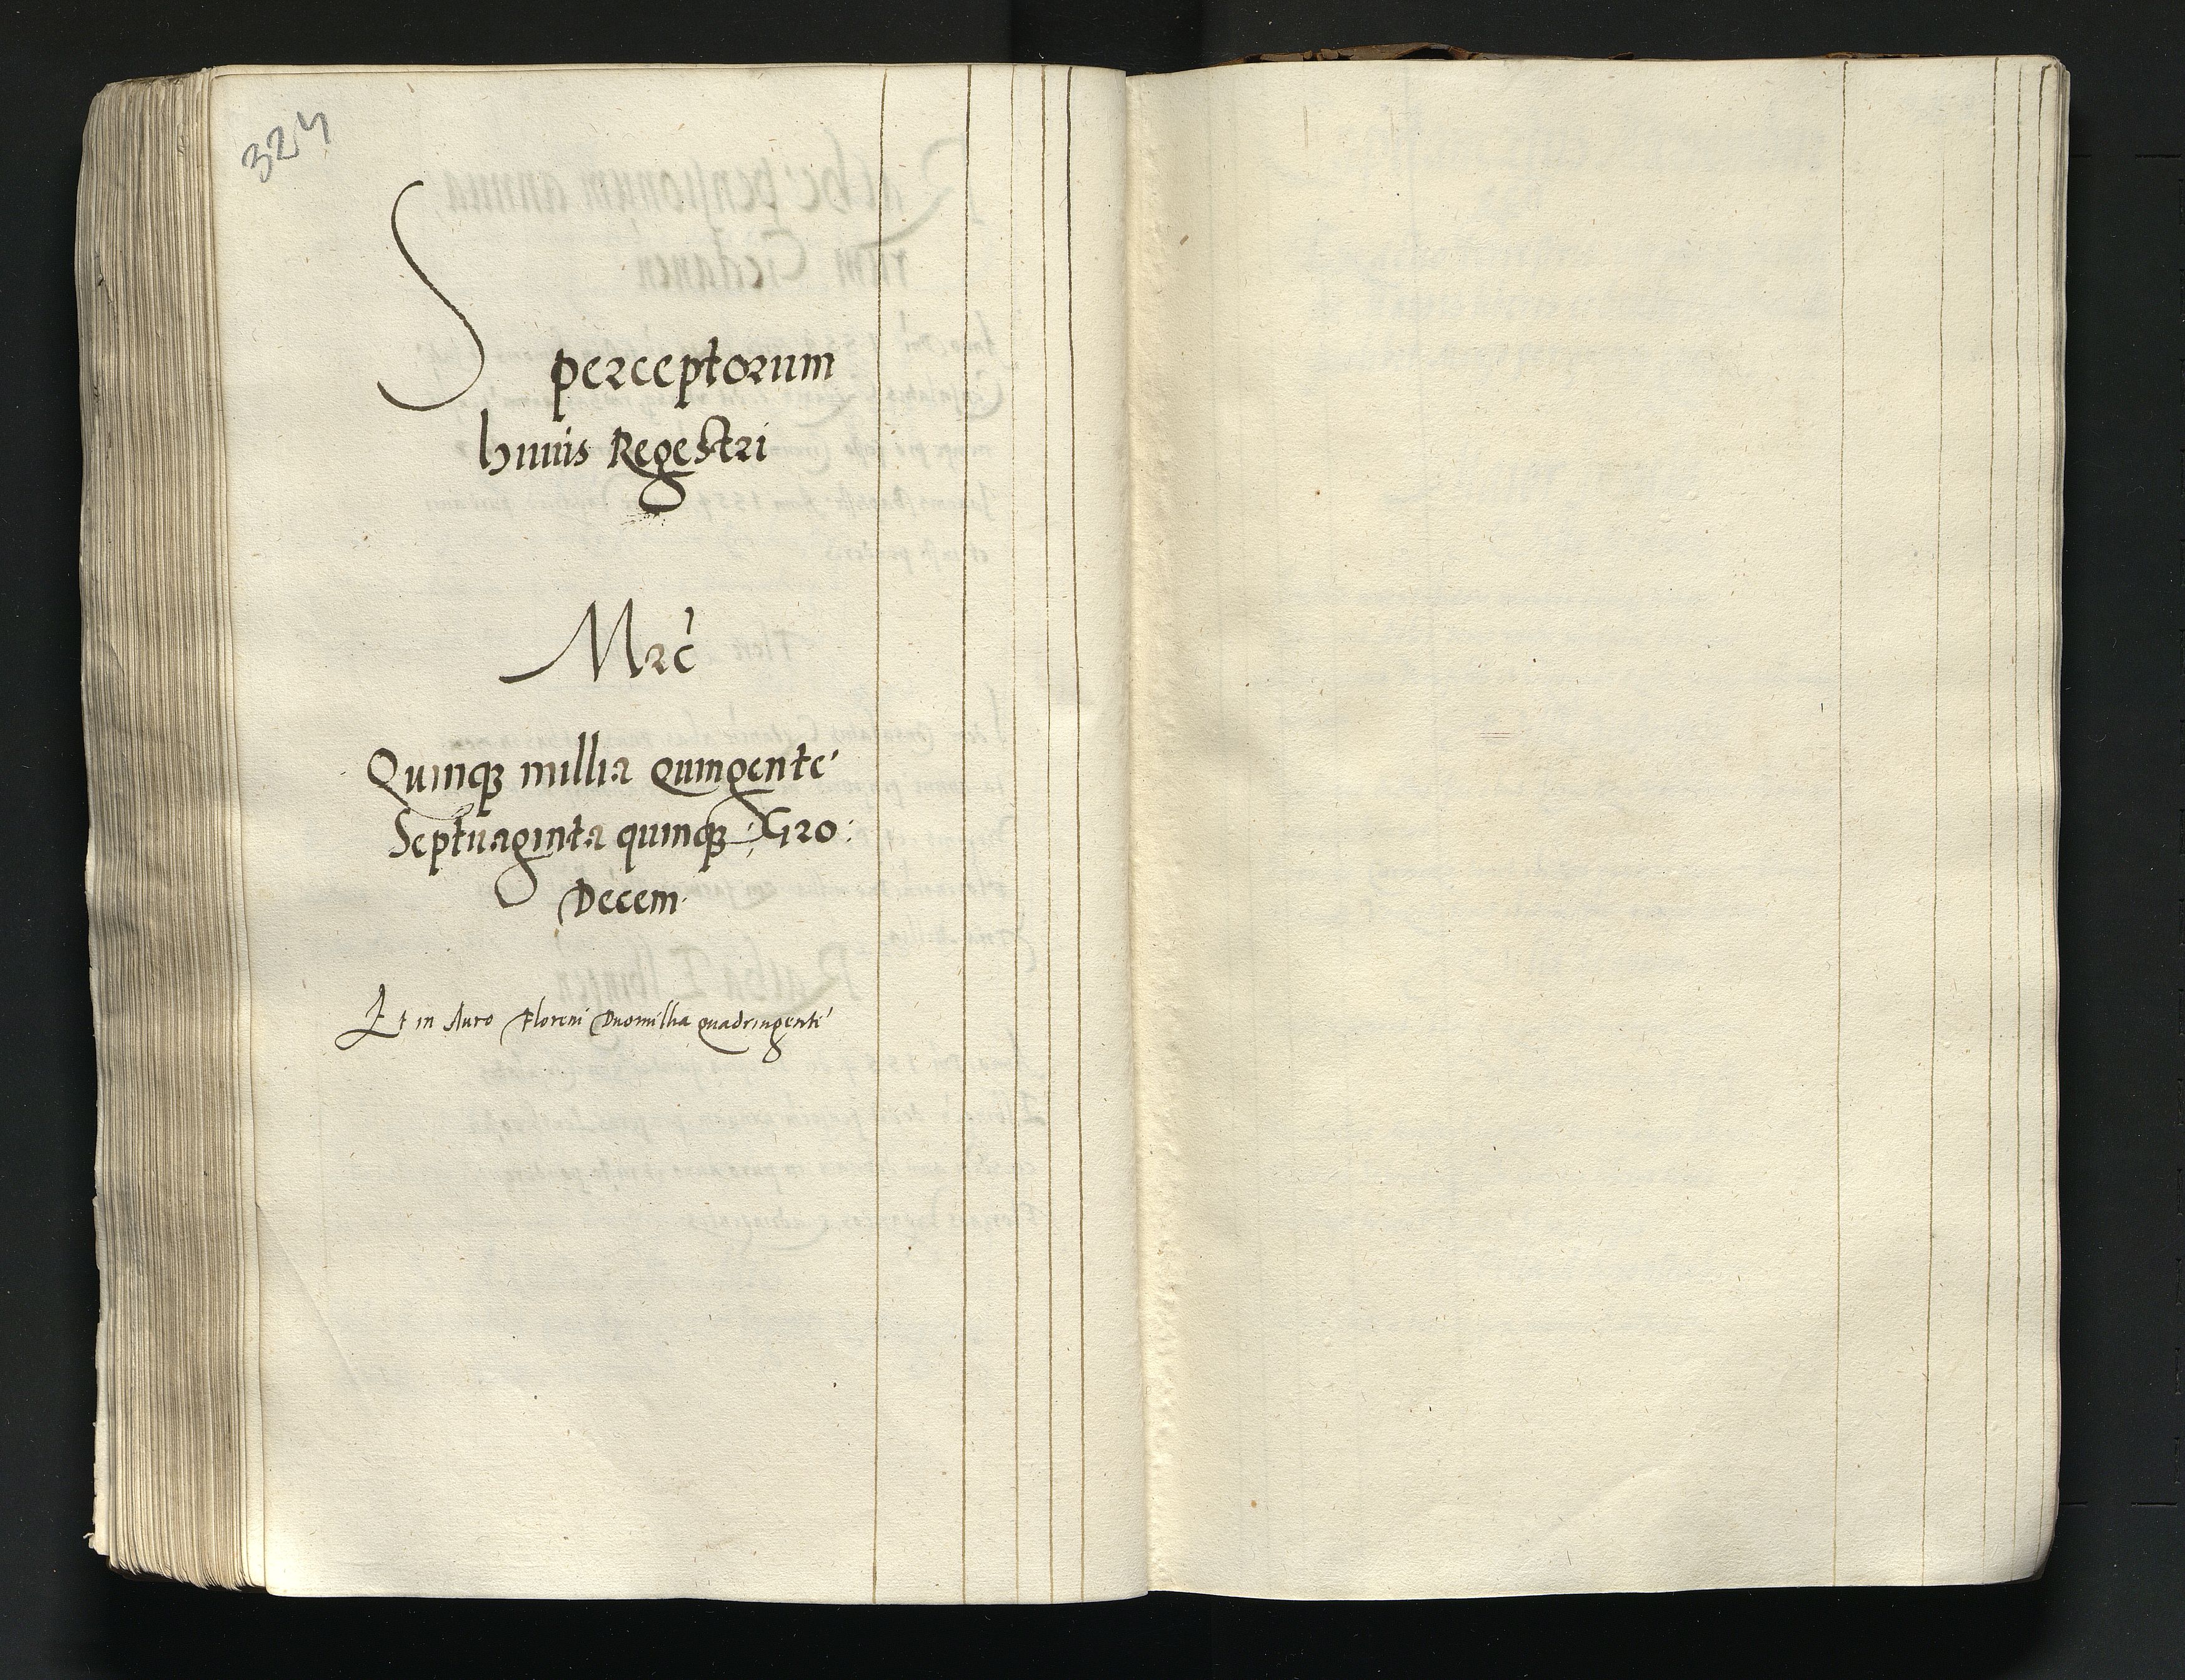 324
S
perceptorum
huius Regestri
Mrc̄
Quinqȝ millia quingente
Septuaginta quinqȝ: Gro:
Decem
Et in Auro Floreni Duomillia quadringenti